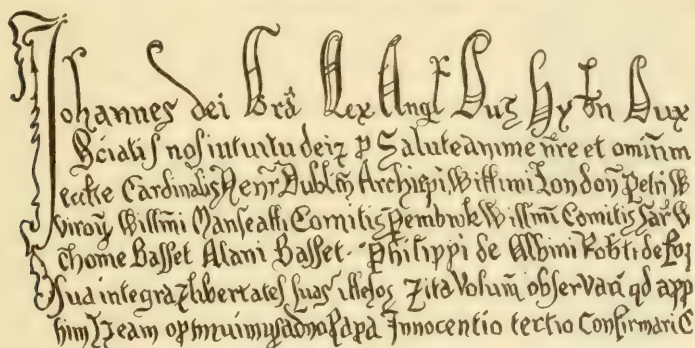 Johannes dei Grā Rex Angl Dux Hybn Dux
Sciatis nos intuitu dei ⁊ p Salute anime n̄re et omniū
eccłie Cardinalis Henr̄ Dublin̄ Archiepi, Wiłłmi London̄ Petri W
viroȝ Wiłłmi Marescałłi Comitis Pembrok Wiłłmi Comitis Sar̄ W
Thome Basset Alani Basset. Philippi de Albini Rob̄ti de
Sua integra ⁊ libertates suas illesas ⁊ ita Volum̄ observari qd app
eam optinuimus a dno Papa Innocentio tertio Confirmari